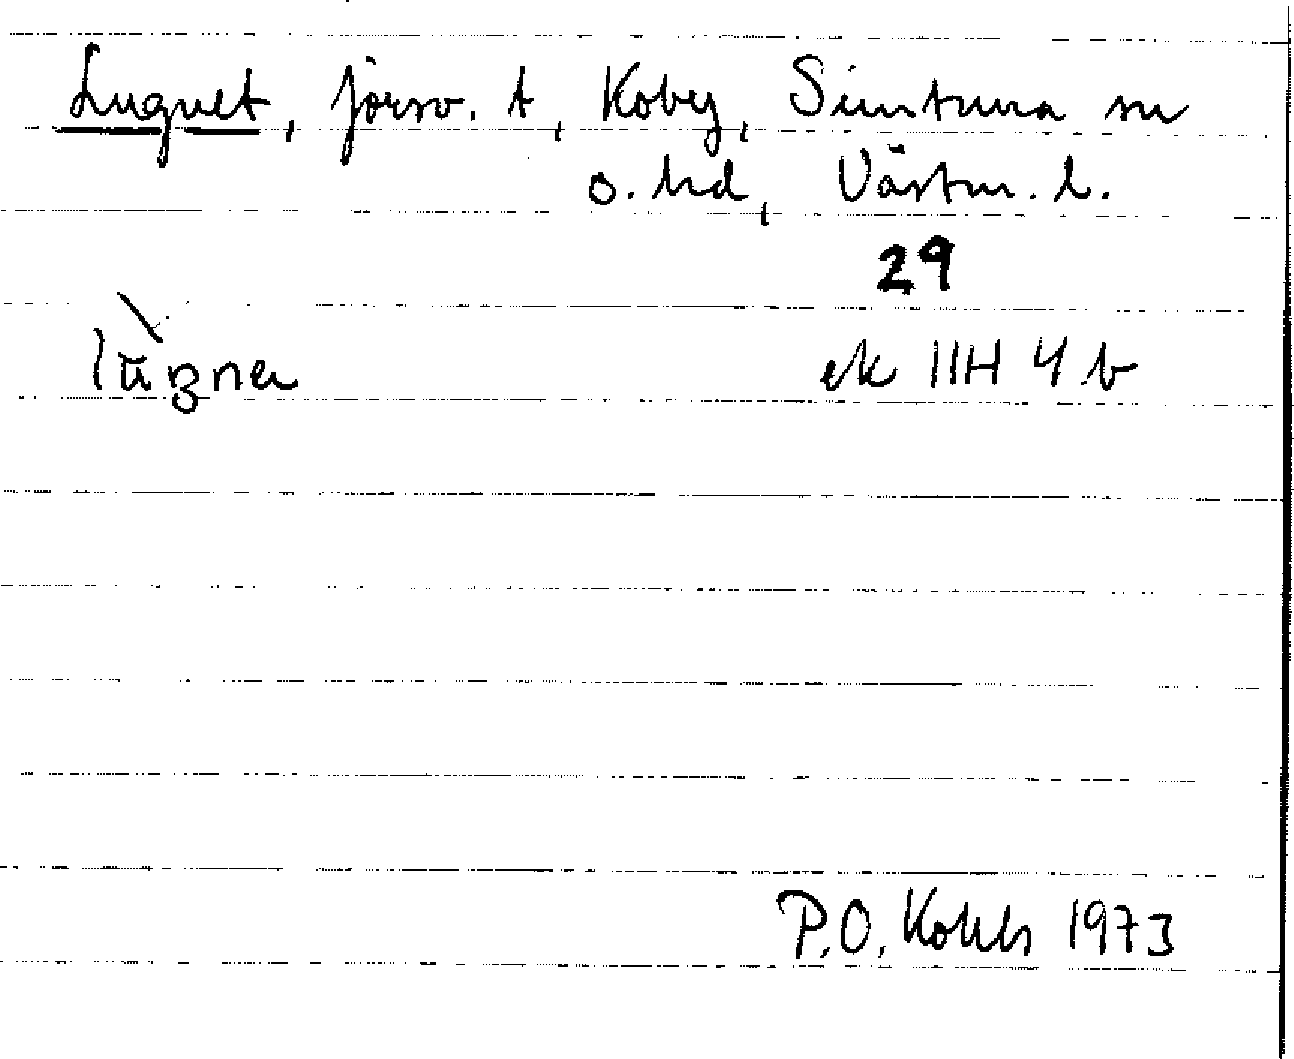 Lugnet, försv. t, Koby, Simtuna sn
o. hd, Västm. l.
29
lùgnen
ek 11H 4 b
P.O. Kohls 1973